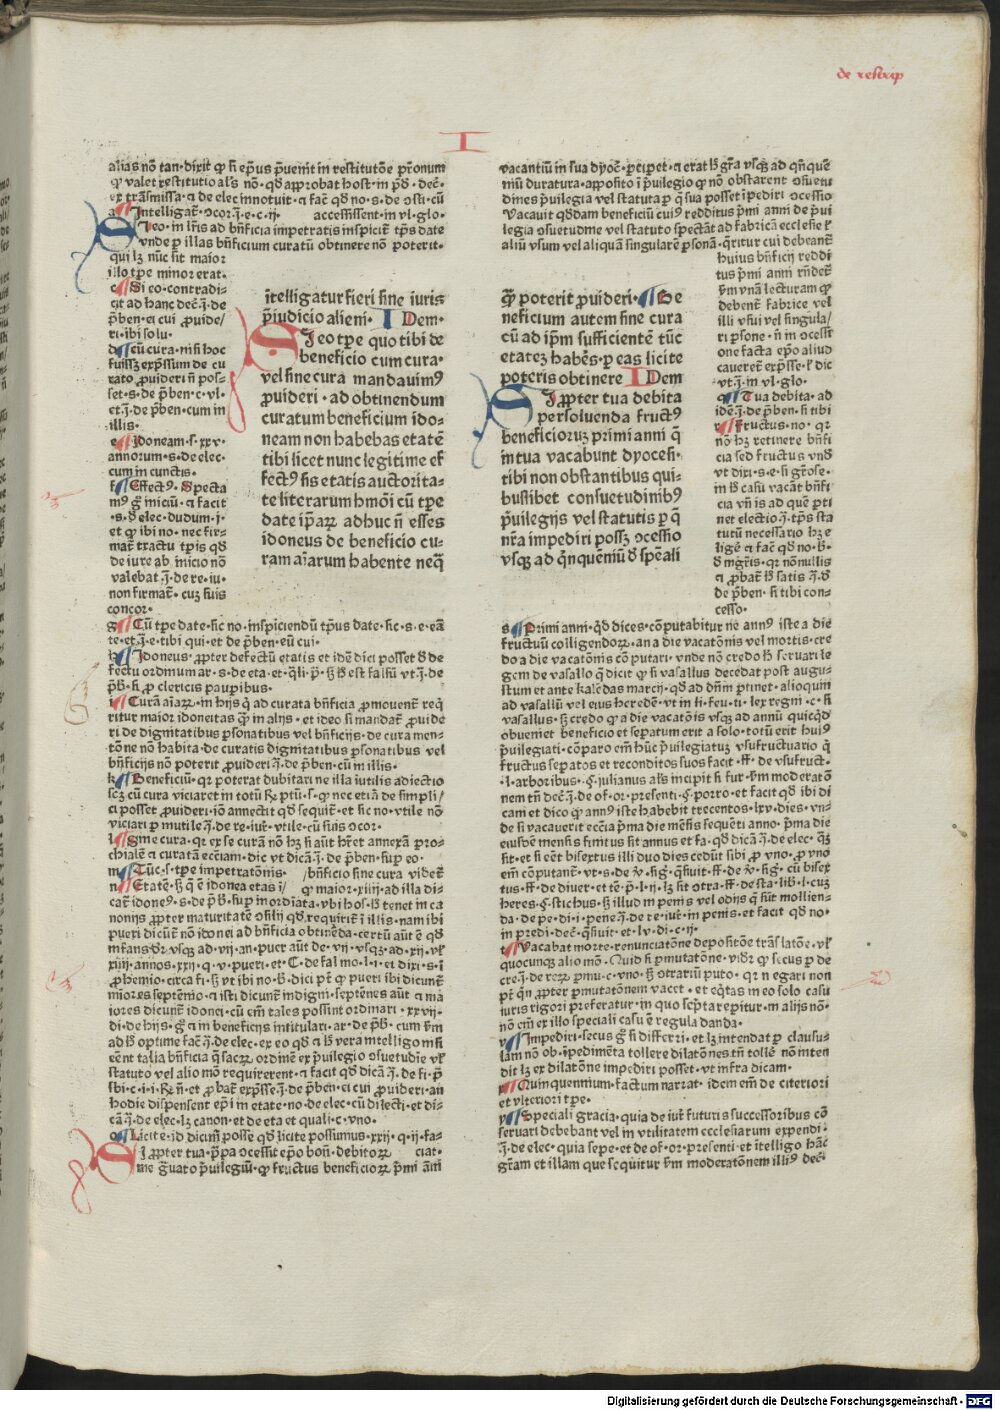 de rescrip
I
alias nō tan· dixit ꝙ si ep̄us p̄uenit in restitutōe p̄ronum
ꝙ valet restitutio al's nō· qd̄ approbat host· in p̄d̄· dec̄·
ex trāsmissa· ⁊ de elec· innotuit· ⁊ fac̄ qd̄ no· s· de ōsti· cū
a Intelligat̄· ↄcor· j̄· e· c· ij· accessissent· in vl· glo·
SI eo· in lr̄is ad bn̄ficia impetratis inspicit̄ tp̄s date
vnde p illas bn̄ficium curatū obtinere nō poterit·
qui lꝫ nūc sit maior
illo tp̄e minor erat·
c Si eo· contradi-
cit ad hanc dec̄· j̄· de
p̄ben· ei cui ꝓuide/
ri· ibi solu·
d cū cura· nisi hoc
fuissꝫ exp̄ssum de cu
rato ꝓuideri n̄ pos-
set· s· de p̄ben· c· vl·
et· j̄· de p̄ben· cum in
illis·
e Idoneam· s· xxv·
annorum· s· de elec·
cum in cunctis·
f Effectꝰ· Specta
mꝰ g̊ iniciū· ⁊ facit
s· d̄ elec· dudum· j·
et ꝙ ibi no· nec fir-
mat̄ tractu tp̄is qd̄
de iure ab inicio nō
valebat· j̄· de· re· iu·
non firmat̄· cuꝫ suis
concor·
intelligatur fieri sine iuris
p̄iudicio alieni· IDem·
SI eo tp̄e quo tibi de
beneficio cum cura·
vel sine cura mandauimꝰ
ꝓuideri· ad obtinendum
curatum beneficium ido-
neam non habebas etatē
tibi licet nunc legitime ef
fectꝰ sis etatis auctorita-
te literarum hmōi cū tp̄e
date ip̄aꝝ adhuc n̄ esses
idoneus de beneficio cu-
ram aīarum habente neq̄
g Cū tp̄e date· sic no· inspiciendū tp̄us date· sic· s· e· eā
te· et· j̄· e· tibi qui· et de p̄ben· eū cui·
h Idoneus ꝓpter defectū etatis et idē dici posset d̄ de
fectu ordinum ar· s· de eta· et· q̄li· p̄· sꝫ h̄ est falsū vt· j̄· de
p̄b̄· si ꝓ clericis paupibus·
i Curā aīaꝝ· in hijs q̄ ad curata bn̄ficia ꝓmouent̄ req̄
ritur maior idoneitas q̄ in alijs· et ideo si mandat̄ ꝓuide
ri de dignitatibus ꝑsonatibus vel bn̄ficijs· de cura men-
tōne nō habita· de curatis dignitatibus ꝑsonatibus vel
bn̄ficijs nō poterit ꝓuideri· j̄· de p̄ben· cū in illis·
k Beneficiū· qꝛ poterat dubitari ne illa iutilis adiectio
scꝫ cū cura viciaret in totū Rē ptū· s· ꝙ nec etiā de simpli/
ci posset ꝓuideri· iō annectit qd̄ sequit̄· et sic no· vtile nō
viciari p inutile· j̄· de re· iur̄· vtile· cū suis ↄcor·
l Sine cura· qꝛ ex se curā nō hꝫ si aūt h̄et annexā ꝑro-
chialē· ⁊ curatā ecc̄iam· dic vt dicā· j̄· de p̄ben· sup eo·
m Tūc· s· tp̄e impetratōnis· /bn̄ficio sine cura videt̄
n Etatē· sꝫ q̄ ē idonea etas i/ ꝙ maior· xiiij· ad illa di-
cat̄ idoneꝰ· s· de p̄b̄· sup inordiata· vbi hos· h̄ tenet in ca
nonijs ꝓpter maturitatē ↄsilij qd̄ requirit̄ i illis· nam ibi
pueri dicunt̄ nō idonei ad bn̄ficia obtinēda· certū aūt ē qd̄
infans d̄r vsqꝫ ad· vij· an· puer aūt de· vij· vsqꝫ· ad· xij· vl'
xiiij annos· xxij· q· v· pueri· et· C· de fal mo· l· i· et dixi· s· i
ꝓhemio· circa fi· sꝫ vt ibi no· H· dici pt̄ ꝙ pueri ibi dicunt̄
miores septēnio· ⁊ isti dicunt̄ indigni· septēnes aūt ⁊ ma
iores dicunt̄ idonei· cū em̄ tales possint ordinari· xxvij·
di· de hijs· g̊ ⁊ in beneficijs intitulari· ar· de p̄b̄· cum b̄m
ad h̄ optime fac̄· j̄· de elec· ex eo· qd̄ ⁊ h̄ vera intelligo nisi
eēnt talia bn̄ficia q̄ sacꝝ ordinē ex p̄uilegio ↄsuetudie vl'
statuto vel alio mō requirerent· ⁊ facit qd̄ dicā j̄· de fi· p̄
sbi· c· i· i Rn̄· et ꝓbat̄ exp̄sse· j̄· de p̄ben· ei cui ꝓuideri· an
hodie dispensent ep̄i in etate· no· de elec· cū dilecti· et di-
cā· j̄· de elec· lꝫ canon· et de eta et quali· c· vno·
o Licite· id dicim̄ posse qd̄ licite possumus· xxij· q· ij· fa-
PRopter tua· p̄pa ↄcessit ep̄o bon̄· debitoꝝ ciat·
me g̊uato p̄uilegiū· ꝙ fructus beneficioꝝ p̄mi ām
vacantiū in sua dyoc̄· ptīpet· ⁊ erat h̄ gr̄a vsqꝫ ad qn̄quē
niū duratura· apposito i p̄uilegio ꝙ nō obstarent ↄsuetu
dines p̄uilegia vel statuta p q̄ sua posset ip̄ediri ↄcessio
Vacauit qd̄dam beneficiū cuiꝰ redditus p̄mi anni de p̄ui
legia ↄsuetudine vel statuto spectāt ad fabricā ecclesie l'
aliū vsum vel aliquā singularē ꝑsonā· q̄ritur cui debeant̄
huius bn̄ficij reddi
tus p̄mi anni· rn̄det̄
b̄m vnā lecturam ꝙ
debent̄ fabrice vel
illi vsui vel singula/
ri ꝑsone· n̄ in ↄcessi
one facta ep̄o aliud
caueret̄ exp̄sse· l' dic
vt· j̄· in vl· glo·
q Tua debita· ad
idē· j̄· de p̄ben· si tibi
r Fructus· no· qꝛ
nō hꝫ retinere bn̄fi
cia sed fructus vnd̄
vt dixi· s· e· si gr̄ose·
in h̄ casu vacāt bn̄fi
cia vn̄ is ad quē pti
net electio· j̄· tp̄s sta
tutū necessario hꝫ e
ligē ⁊ fac̄ qd̄ no· b̄·
d̄ mgr̄is· qꝛ nōnullis
⁊ ꝓbat̄ h̄ satis· j̄· d̄
de p̄ben· si tibi con-
cesso·
q̄ꝫ poterit ꝓuideri· Be
neficium autem sine cura
cū ad ip̄m sufficientē tūc
etateꝫ habēs· p eas licite
poteris obtinere IDem
PRopter tua debita
persoluenda fructꝰ
beneficioruꝫ primi anni q̄
in tua vacabunt dyocesi·
tibi non obstantibus qui-
buslibet consuetudinibꝰ
p̄uilegijs vel statutis p q̄
nr̄a impediri possꝫ ↄcessio
vsqꝫ ad qn̄quēniū d̄ sp̄eali
s Primi anni· qd̄ dices· cōputabitur ne annꝰ iste a die
fructuū colligendoꝝ· an a die vacatōnis vel mortis· cre
do a die vacatōnis cō putari· vnde nō credo h̄ seruari le
gem de vasallo q̄ dicit ꝙ si vasallus decedat post augu-
stum et ante kalēdas marcij· qd̄ ad dn̄m ptinet· alioquin
ad vasallū vel eius heredē· vt in li· feu· ti· lex regni· c· si
vasallus· sꝫ credo ꝙ a die vacatōis vsqꝫ ad annū quicqd̄
obueniet beneficio et sepatum erit a solo· totū erit huiꝰ
p̄uilegiati· cōparo em̄ hūc p̄uilegiatuꝫ vsufructuario q̄
fructus sepatos et reconditos suos facit· ff· de vsufruct·
l· arboribus· §· iulianus al's incipit si fur· b̄m moderatō
nem tn̄ dec̄· j̄· de of· or· presenti· §· porro· et facit qd̄ ibi di
cam et dico ꝙ annꝰ iste habebit trecentos· lxv· dies· vn-
de si vacauerit ecc̄ia p̄ma die mēsis sequēti anno· p̄ma die
eiusdē mensis finitus sit annus et fa· qd̄ dicā· j̄· de elec· qꝫ
sit· et si eēt bisextus illi duo dies cedūt sibi ꝓ vno· ꝓ vno
em̄ cōputant̄· vt· s· de v̄· sig̊· q̄siuit· ff· de v̄· sig̊· cū bisex
tus· ff· de diuer· et tē· p̄· l· ij· lꝫ sit otra· ff· de sta· lib̄· l· cuꝫ
heres· §· stichus· sꝫ illud in penis vel odijs q̄ sūt mollien-
da· de pe· di· i· pene· j̄· de re· iur̄· in penis· et facit qd̄ no·
in predi· dec̄· q̄siuit· et· lv· di· c· ij·
t Vacabāt morte· renunciatōne depositōe trās latōe· vl'
quocunqꝫ alio mō· Quid si pmutatōne· vid̄r ꝙ secus p de
cre· j̄· de reꝝ pmu· c· vno· sꝫ ↄtrariū puto· qꝛ n egari non
pt̄ qn̄ ꝓpter pmutatōnem vacet· et eq̄tas in eo solo casu
iuris rigori preferatur· in quo scp̄ta repitur· in alijs nō·
nō em̄ ex illo speciali casu ē regula danda·
v Impediri· secus g̊ si differri· et lꝫ intendat p clausu-
lam nō ob· ip̄edimēta tollere dilatōnes tn̄ tollē nō inten
dit lꝫ ex dilatōne impediri posset· vt infra dicam·
x Quinquennium· factum narrat· idem em̄ de citeriori
et vlteriori tp̄e·
y Speciali gracia· quia de iur̄ futuris successoribus cō
seruari debebant vel in vtilitatem ecclesiarum expendi·
j̄· de elec· quia sepe· et de of· or· presenti· et itelligo hāc
gr̄am et illam que seqūitur b̄m moderatōnem illiꝰ dec̄·
Digitalisierung gefördert durch die Deutsche Forschungsgemeinschaft - DFG